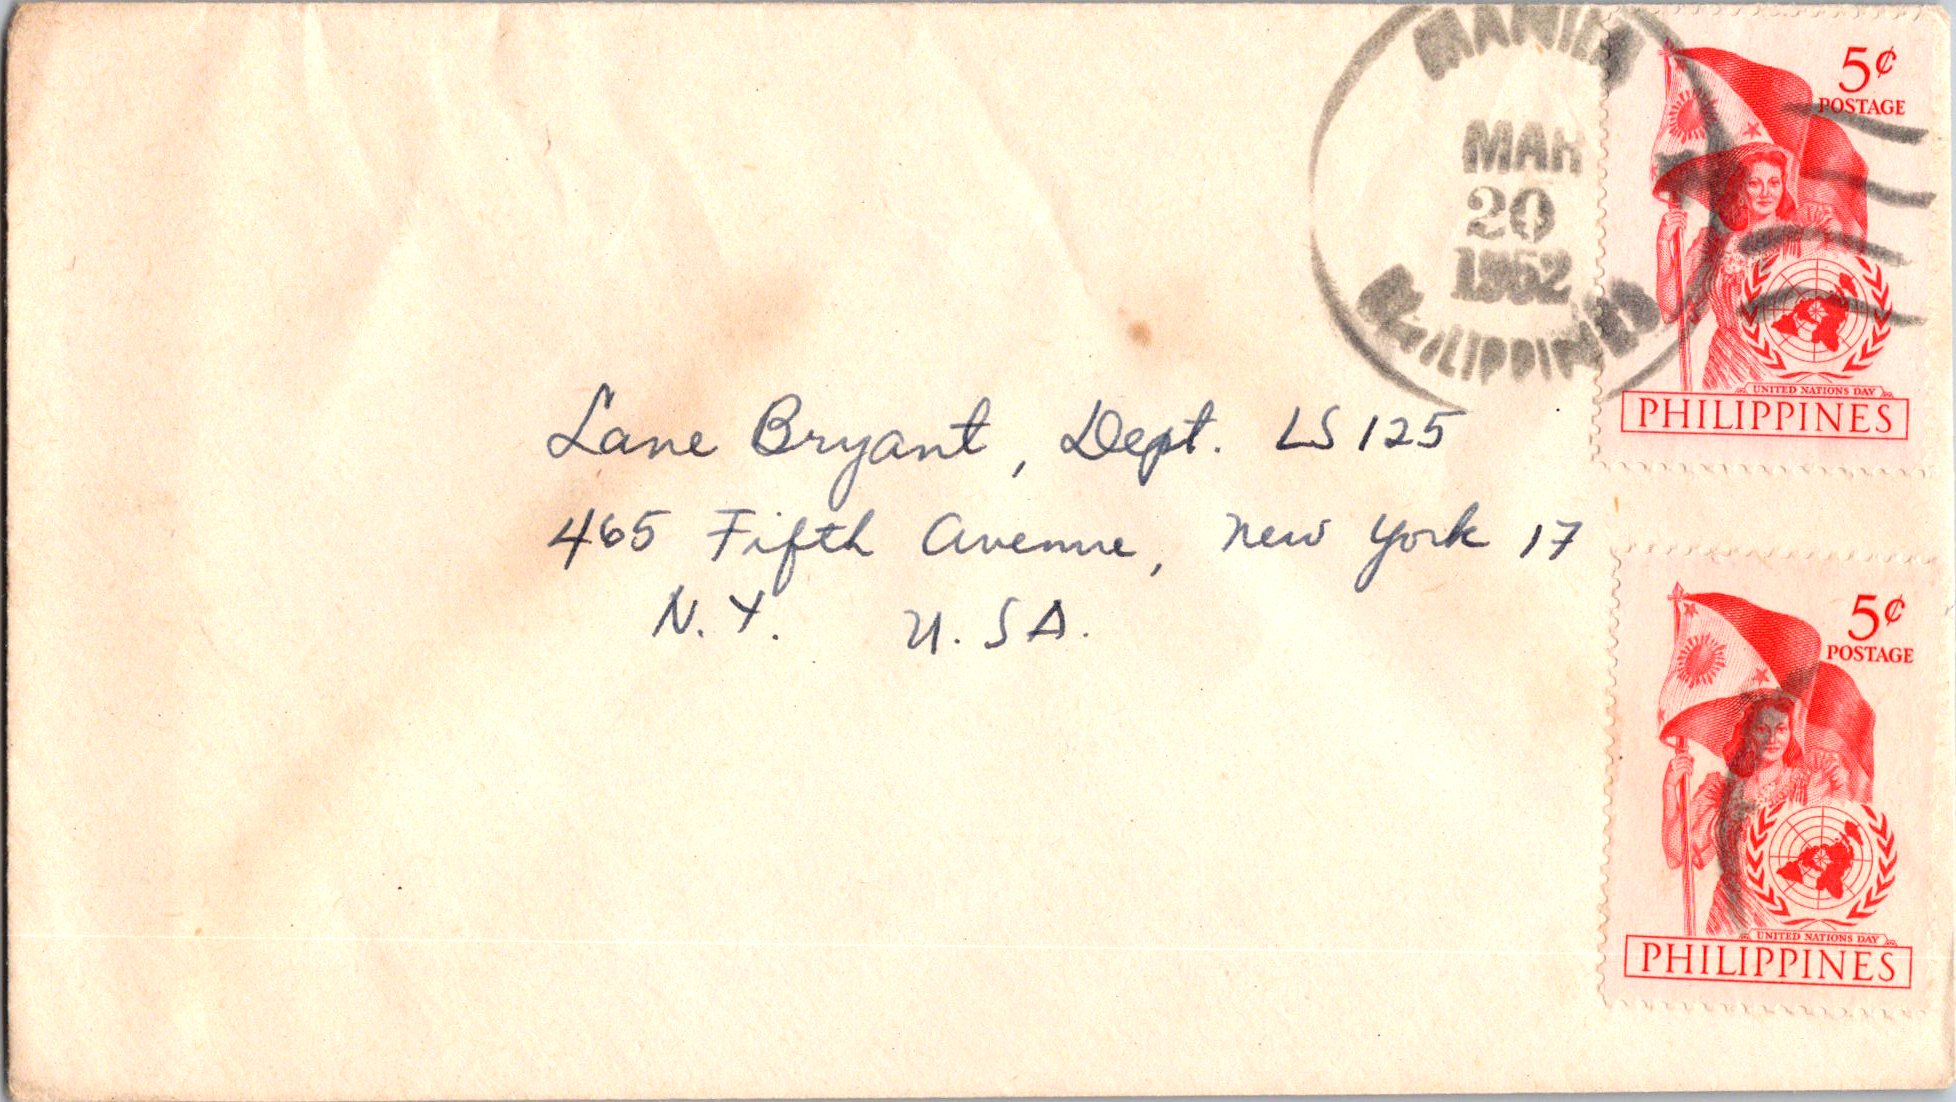 MANILA
MAR
20
1952
PHILIPPINES
5¢
POSTAGE
UNITED NATIONS DAY
PHILIPPINES
Lane Bryant, Dept. LS 125
465 Fifth Avenue, New York 17
N.Y. U.SA.
5¢
POSTAGE
UNITED NATIONS DAY
PHILIPPINES